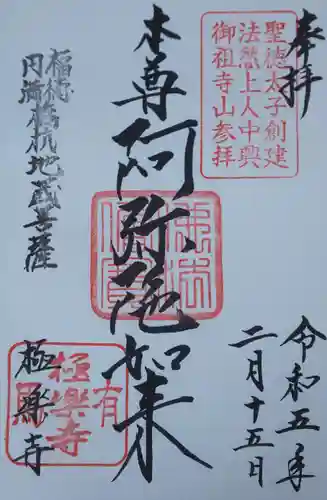 奉拝
聖徳太子創建
法然上人中興
御祖寺山参拝
本尊 阿弥陀如来
福徳
円満 地蔵菩薩
令和五年
二月十五日
極楽寺
有
極樂寺
佛法僧寶